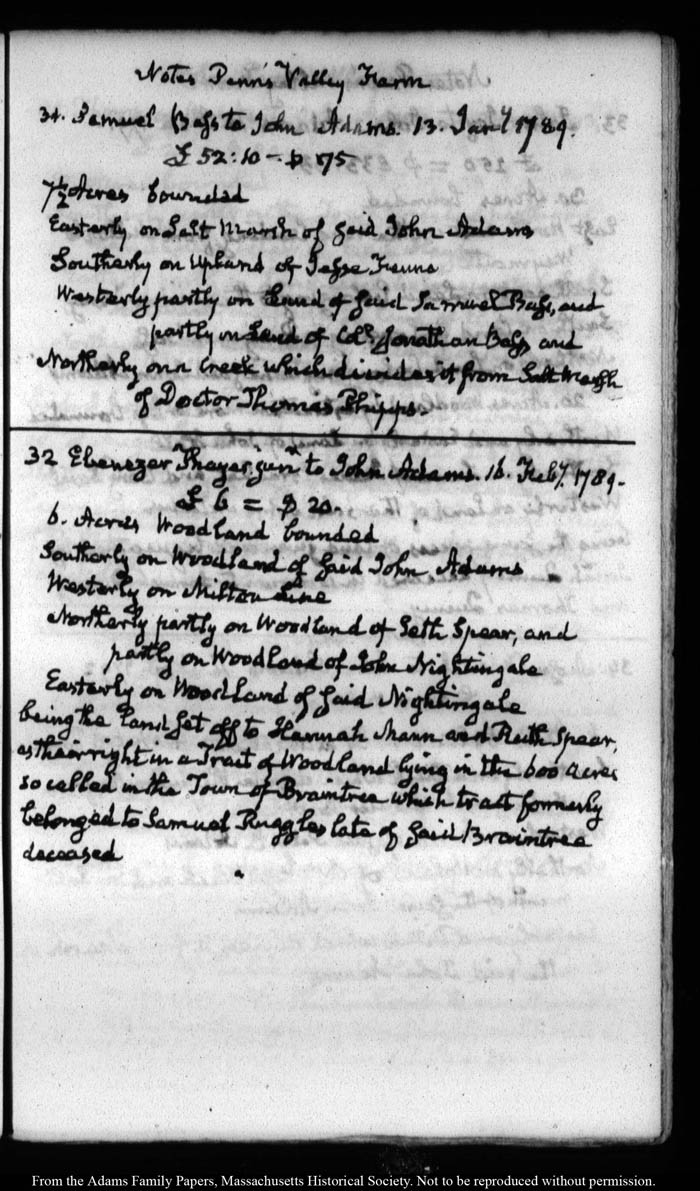 Notes Penn's Valley Farm
31. Samuel Bass to John Adams. 13. Jany 1789.
£ 52:10 – $ 175
7½ Acres bounded
Easterly on Salt Marsh of said John Adams
Southerly on Upland of Jesse Fenno
Westerly partly on Land of said Samuel Bass, and
partly on Land of Col. Jonathan Bass and
Northerly on a Creek which divides it from Salt Marsh
of Doctor Thomas Phipps.
32 Ebenezer Thayer junr to John Adams. 16. Feby. 1789.
£ 6 = $ 20.
6. Acres Woodland bounded
Southerly on Woodland of said John Adams
Westerly on Milton Line
Northerly partly on Woodland of Seth Spear, and
partly on Woodland of John Nightingale
Easterly on Woodland of said Nightingale
being the Land set off to Hannah Mann and Ruth Spear,
as their right in a Tract of Woodland lying in the 600 Acres
so called in the Town of Braintree which tract formerly
belonged to Samuel Ruggles late of said Braintree
deceased
From the Adams Family Papers, Massachusetts Historical Society. Not to be reproduced without permission.